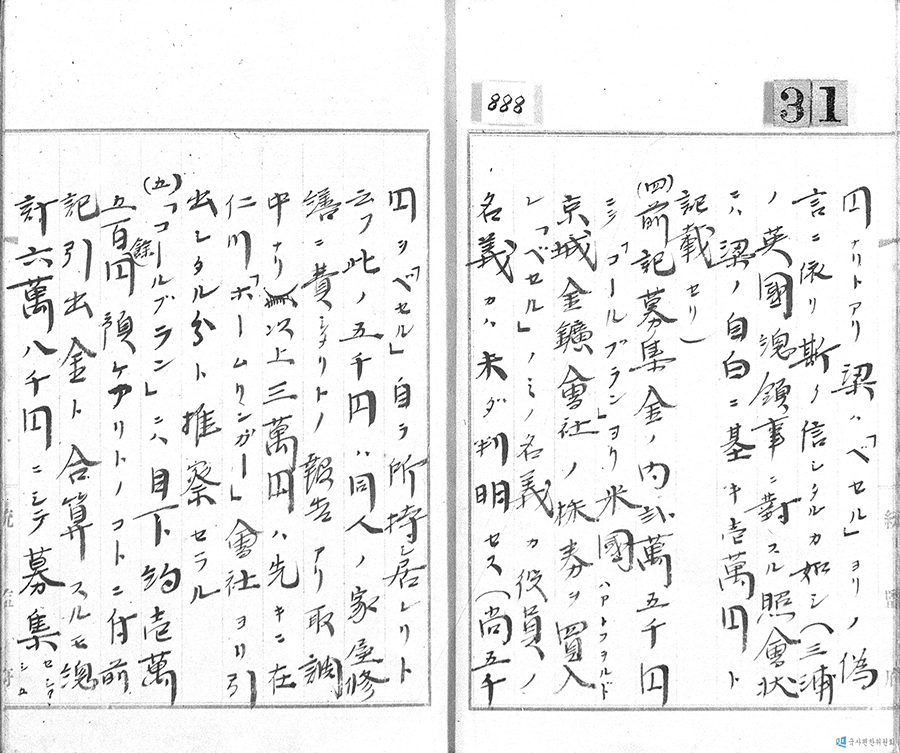 888
31
円ナリトアリ梁ハ「ベセル」ヨリノ偽
言ニ依リ斯ク信シタルカ如シ(三浦
ノ英國總領事ニ對スル照會状
ニハ梁ノ自白ニ基キ壱萬円ト
記載セリ)
(四)前記募集金ノ内弐萬五千円
ニシ「コールブラン」ヨリ米國ハアトフオルド
京城金鑛會社ノ株券ヲ買入
レ「ベセル」ノミノ名義カ役員ノ
名義カハ未ダ判明セス(尚五千
円ヲ「ベセル」自ラ所持シ居レリト
云フ此ノ五千円ハ同人ノ家屋修
繕ニ費シタリトノ報告アリ取調
中ナリ)以上三萬円ハ先キニ在
仁川「ホームリンガー」會社ヨリ引
出シタル分ト推察セラル
(五)「コールブラン」ニハ目下約壱萬
五百円餘預ケアリトノコトニ付前
記引出金ト合算スルモ總
計六萬八千円ニシテ募集セシ
統監府
統監府
국사편찬위원회